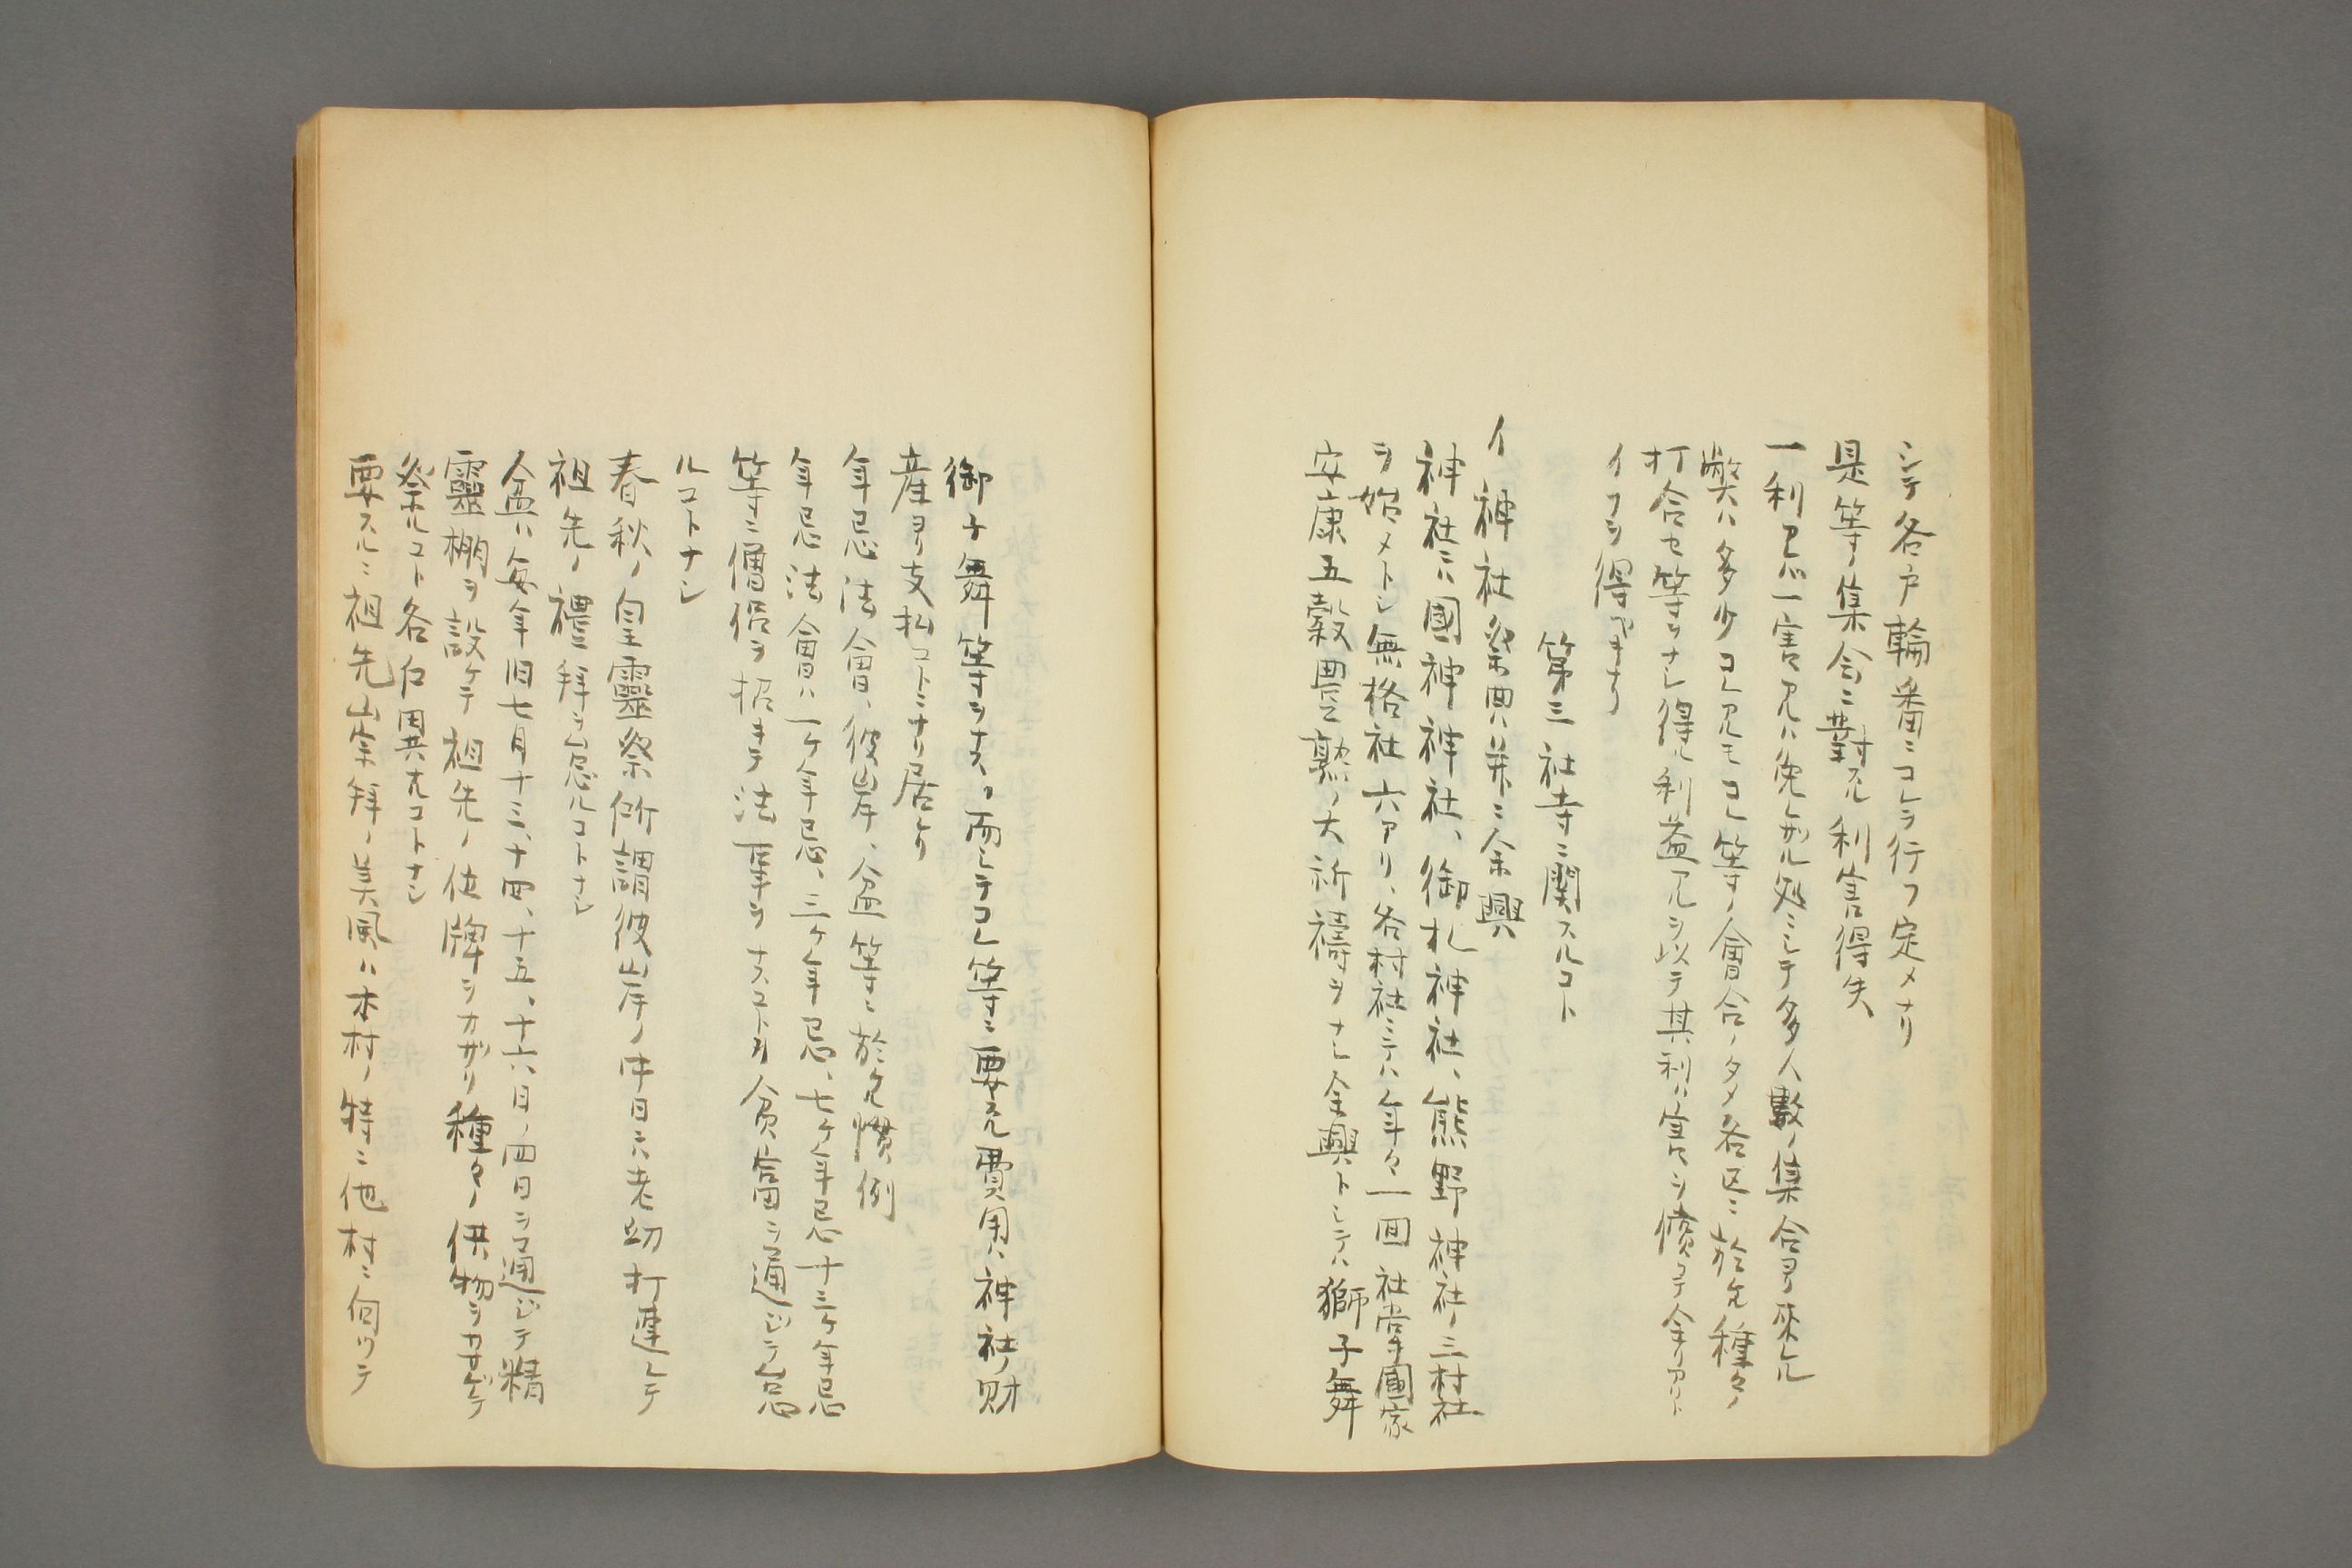 シテ各戸輪番ニコレヲ行フ定メナリ
是等ノ集会ニ對スル利害得失
一利アレバ一害アルハ免レザル処ニシテ多人數ノ集合ヨリ来ル
弊ハ多少コレアルモコレ等ノ會合ノタメ各区ニ於ケル種々ノ
打合セ等ヲナシ得ル利益アルヲ以テ其利ハ害ヲ償フテ余リアリト
イフヲ得ベキナリ
第三 社寺ニ関スルコト
イ 神社祭典ハ并ニ余興
神社ニハ國神神社、御札神社、熊野神社ノ三村社
ヲ始メトシ無格社六アリ、各村社ニテハ年々一回社掌國家
安康五穀豊熟ノ大祈禱ヲナシ全興トシテハ獅子舞
御子舞等ヲナス、而シテコレ等ニ要スル費用ハ神社ノ財
産ヨリ支払コトニナリ居レリ
年忌法會、彼岸、盆等ニ於ケル慣例
年忌法會ハ一ケ年忌、三ケ年忌、七ケ年忌十三ケ年忌
等ニ僧侶ヲ招キテ法要ヲナスコトハ貧富ヲ通ジテ怠
ルコトナシ
春秋ノ皇靈祭所謂彼岸ノ中日ニハ老幼打連レテ
祖先ノ禮拜ヲ怠ルコトナシ
盆ハ毎年旧七月十三、十四、十五、十六日ノ四日ヲ通ジテ精
靈棚ヲ設ケテ祖先ノ位牌ヲカザリ種々ノ供物ヲカザリテ
祭ルコト各戸異ナルコトナシ
要スルニ祖先崇拜ノ美風ハ本村ノ特ニ他村ニ向ツテ